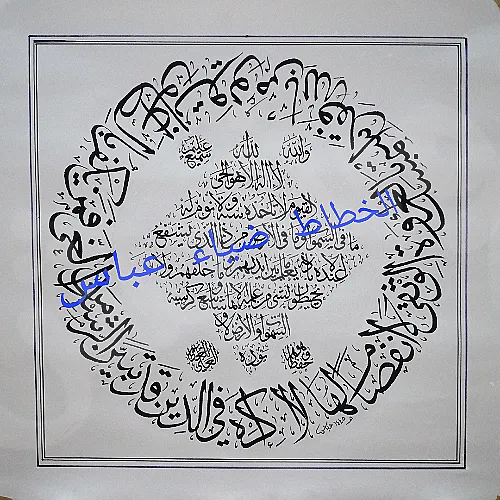 والله
الله
سميع عليم
لا اله الا هو الحي
القيوم لا تأخذه سنة ولا نوم له
ما في السموات وما في الارض من ذا الذي يشفع
يعلم ما بين ايديهم وما خلفهم ولا
يحيطون بشيء من علمه الا بما شاء وسع كرسيه
السموات والارض ولا
يؤده
حفظهما وهو
العلي العظيم
لا اكراه في الدين قد تبين الرشد من الغي فمن يكفر بالطاغوت ويؤمن بالله فقد استمسك بالعروة الوثقى لا انفصام لها
الخطاط ضياء عباس